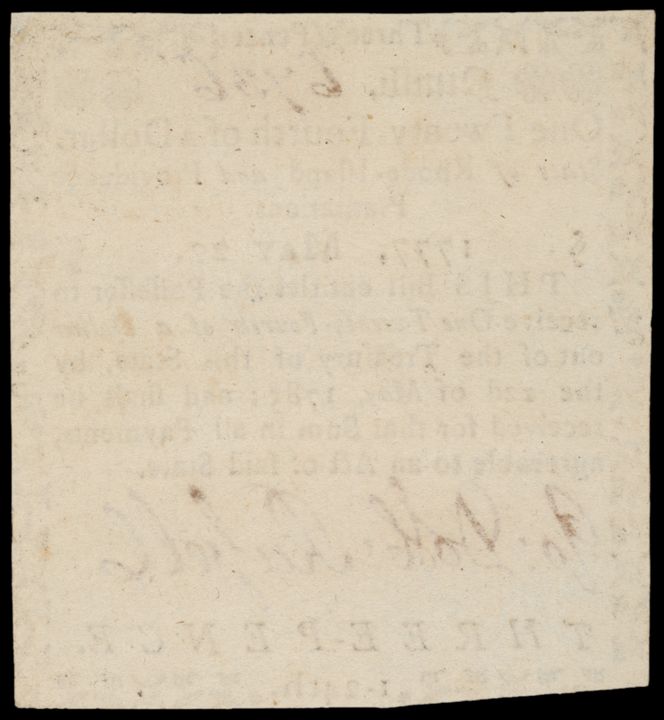 Three Pence.
Numb. 6756
One Twenty-Fourth of a Dollar.
State of Rhode-Island and Providence
Plantations.
1777. May 22.
THIS Bill entitles the Possessor to
receive One Twenty-Fourth of a Dollar
out of the Treasury of this State, by
the 22d of May, 1782; and shall be
received for that Sum in all Payments,
agreeable to an Act of said State.
THREE-PENCE.
1-24th.